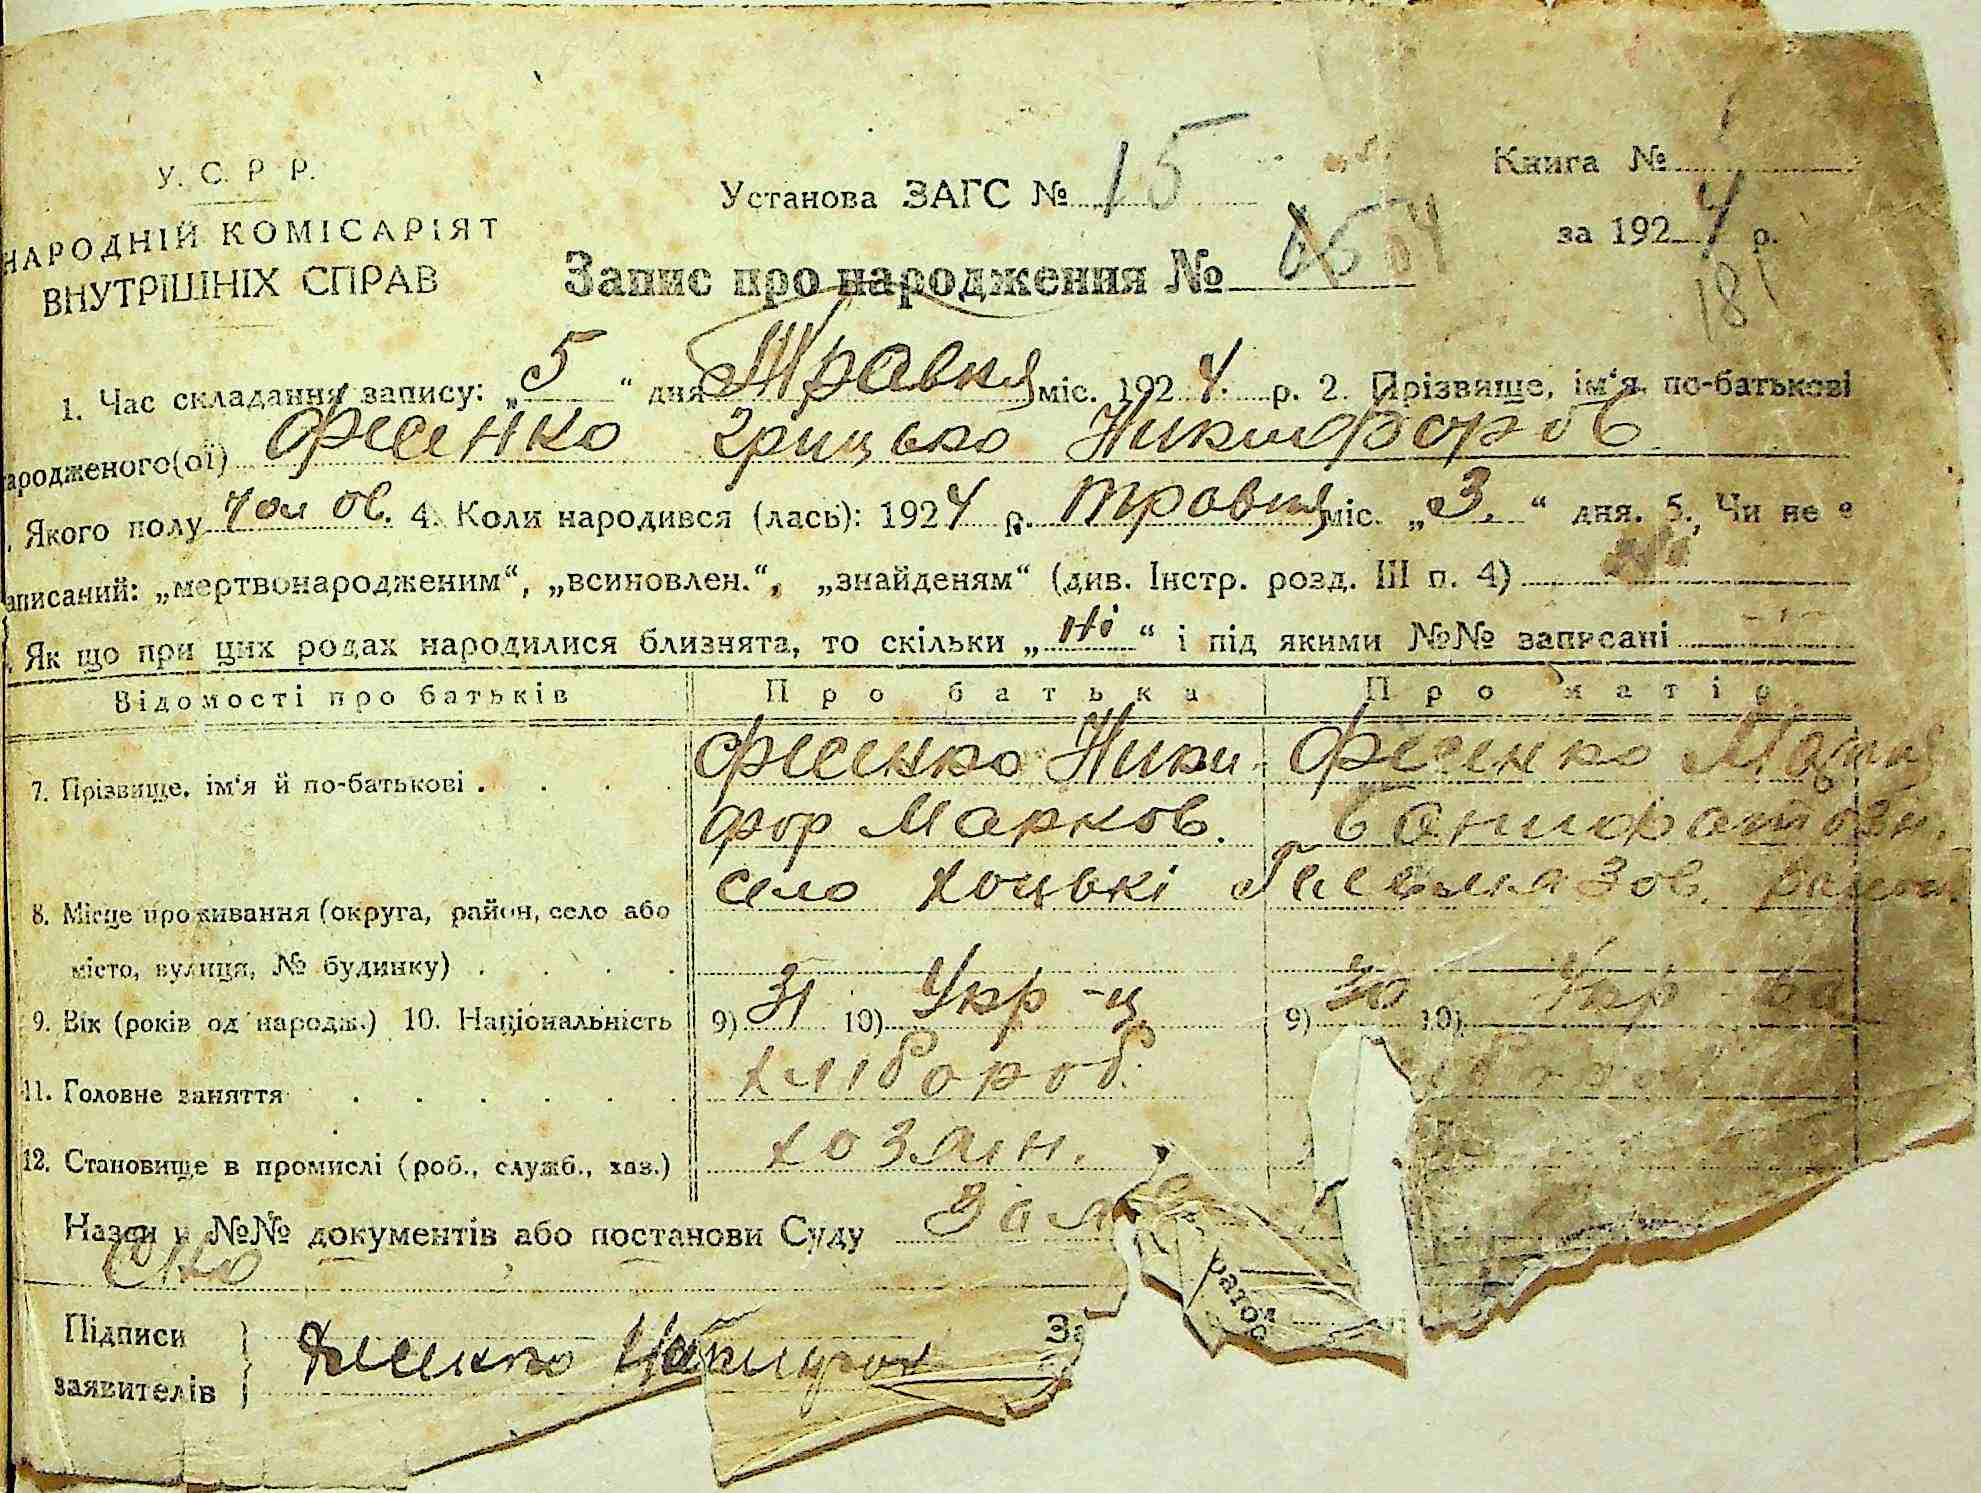 У. С. Р. Р.
НАРОДНІЙ КОМІСАРІЯТ
ВНУТРІШНІХ СПРАВ
Установа ЗАГС № 15
Книга №
за 1924 р.
181
Запис про народження №
1. Час складання запису: „5“ дня Травня міс. 1924 р. 2. Прізвище, ім‘я, по-батькові
народженого(ої) Фесенко Грицько Никифоров
. Якого полу чолов. 4. Коли народився (лась): 1924 р. травня міс. „3.“ дня. 5. Чи не є
аписаний: „мертвонародженим“, „всиновлен.“, „знайденям“ (див. Інстр. розд. III п. 4) ні
. Як що при цих родах народилися близнята, то скільки „ні“ і під якими №№ записані
Відомості про батьків Про батька Про матір
7. Прізвище, ім‘я й по-батькові . . . . Фесенко Ники Фесенко
фор Марков.
8. Місце проживання (округа, район, село або село Хоцькі Гельмязов. район
місто, вулиця, № будинку) . . . .
9. Вік (років од народж.) 10. Національність 9) 31 10) Укр-ц 9) 30 10) Укр-ка
11. Головне заняття . . . . . . хлібороб.
12. Становище в промислі (роб., служб., хаз.) хозяїн.
Назви й №№ документів або постанови Суду
Підписи
заявителів
Фесенко Никифор
За